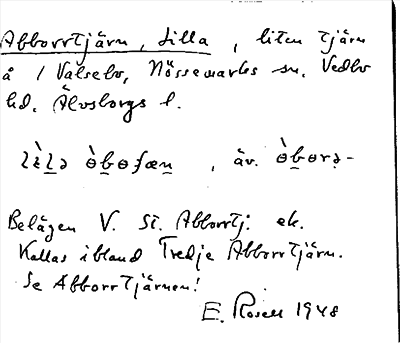 Abborrtjärn, Lilla, liten tjärn
å / Valsebo, Nössemarks sn. Vedbo
hd. Älvsborgs l.
, äv.
Belägen V. St. Abborrtj. ek.
Kallas ibland Tredje Abborrtjärn.
Se Abborrtjärnen!
E. Rosell 1948